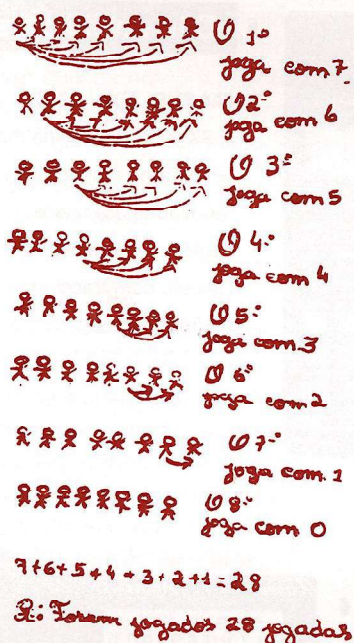 O 1º
joga com 7
O 2º
joga com 6
O 3º
joga com 5
O 4º
joga com 4
O 5º
joga com 3
O 6º
joga com 2
O 7º
joga com 1
O 8º
joga com 0
7+6+5+4+3+2+1=28
R: Foram jogados 28 jogadas